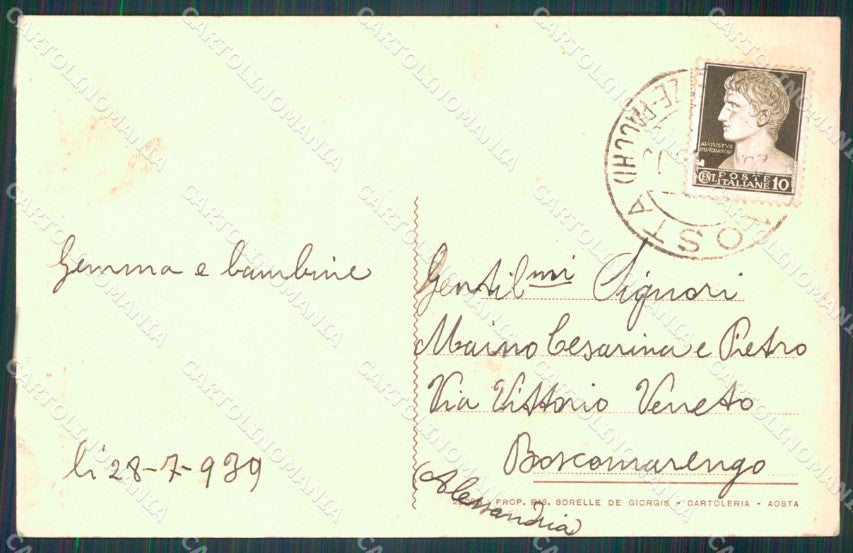 Gemma e bambine
li 28-7-939
AUGUSTUS
IMPERATOR
POSTE
CENT. ITALIANE 10
AOSTA
ZE-PACCHI)
Gentil.mi Signori
Maino Cesarina e Pietro
Via Vittorio Veneto
Boscomarengo
(Alessandria
PROP. RIS. SORELLE DE GIORGIS - CARTOLERIA - AOSTA
CARTOLINOMANIA